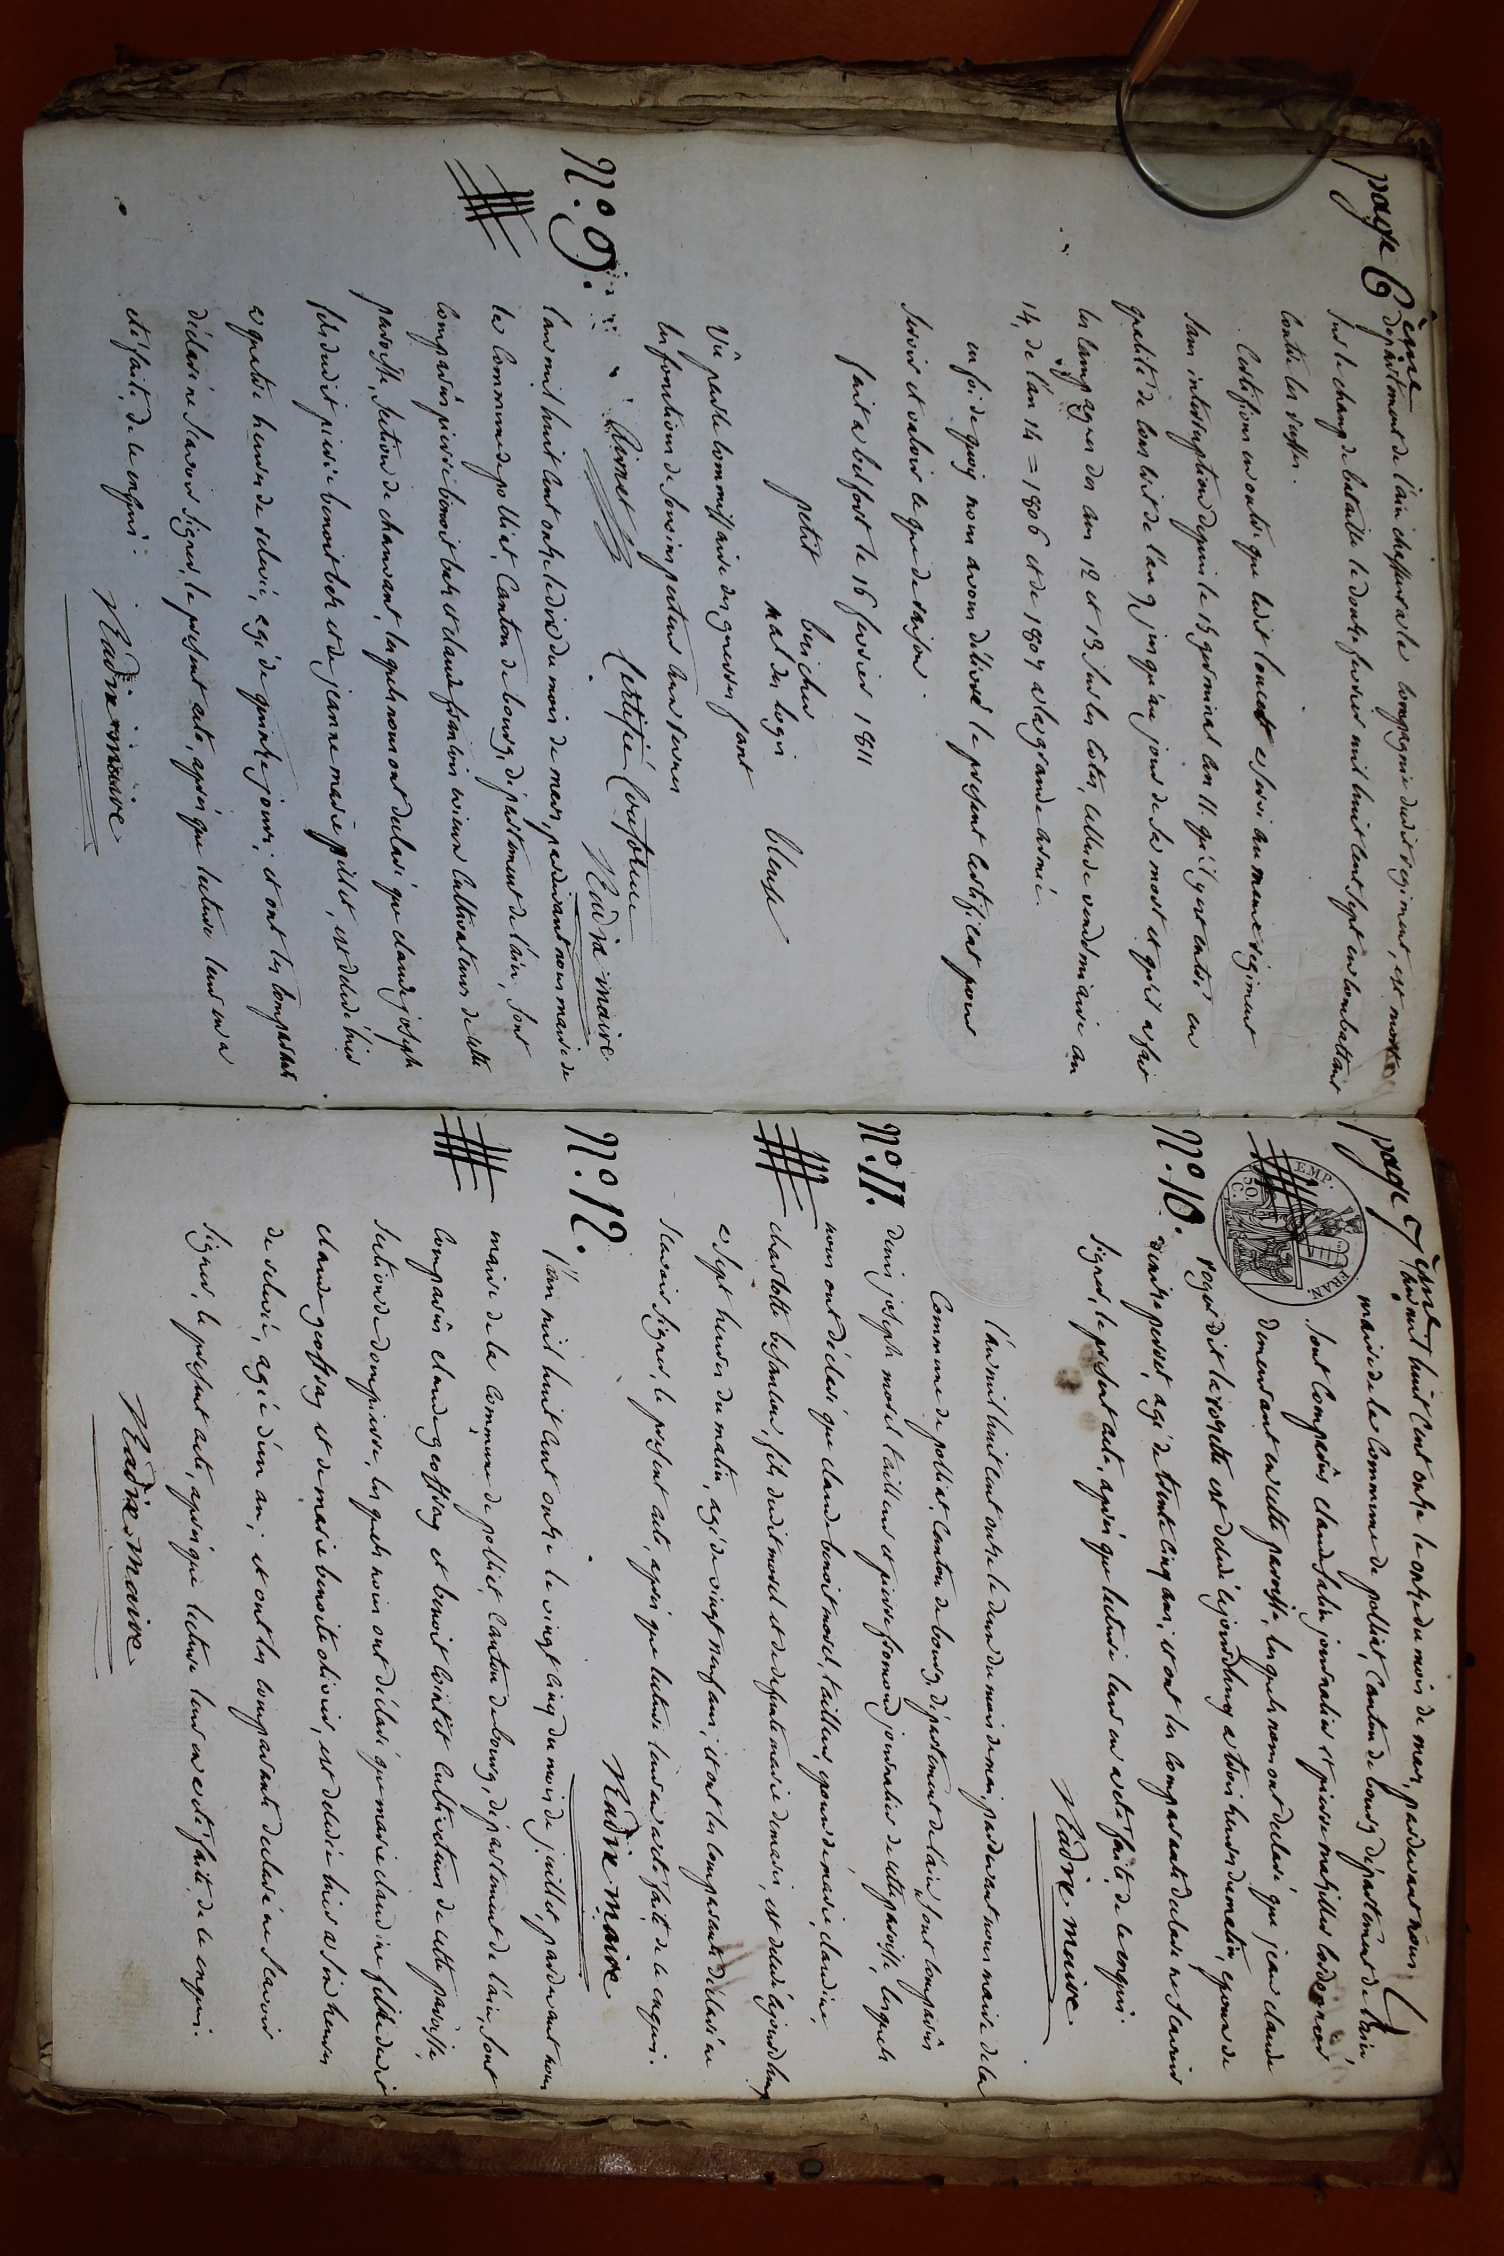 page 6ème
département de l'ain cheffieux a la compagnie dudit regiment, est mort
sur le champ de bataille le douze fevrier mil huit cent sept en combattant
contre les russes.
Certifions en outre que ledit a servi au meme regiment
sans interruption depuis le 19 germinal an 11. qu'il y est entré en
qualité de conscrit de l'an 9 jusqu'au jour de sa mort et qu'il a fait
les campagnes des ans 12 et 13 sur les côtes, celle de vendemiaire an
14, de l'an 14 = 1806 et de 1807 a la grande armée.
en foi de quoy nous avons délivré le present certificat pour
servir et valoir ce que de raison.
fait a belfort le 16 fevrier 1811
petit
mal des logis
Vu par le commissaire des guerres fant
les fonctions de sous inspecteur aux revues
Certifié Conforme
Nadre maire
N.° 9.
l'an mil huit cent onze le dix du mois de mars, pardevant nous maire de
la Commune de polliat, Canton de bourg, département de l'ain, sont
comparus pierre benoit et claude francois cultivateurs de cette
paroisse, section de chanvant, lesquels nous ont declaré que claude joseph
fils dudit pierre benoit et de jeanne marie pillet, est decedé hier
a quatre heures de relevé, agé de quinze jours; et ont les comparants
déclaré ne scavoir signer, le present acte, après que lecture leur en a
eté faite, de ce enquis.
Nadre maire
page 7ème
l'an mil huit cent onze le onze du mois de mars, pardevant nous
maire de la Commune de polliat, Canton de bourg département de l'ain
sont comparus claude journalier et pierre
EMP. FRAN.
50. C.
demeurant en cette paroisse, lesquels nous ont declaré que jean claude
N.° 10.
roger dit la rosette est decedé cejourdhuy a trois heures du matin, epoux de
perret, agé de trente cinq ans; et ont les comparants declaré ne scavoir
signer, le present acte, après que lecture leur en a eté faite, de ce enquis
Nadre maire.
l'an mil huit cent onze le deux du mois de mai, pardevant nous maire de la
Commune de polliat, Canton de bourg, département de l'ain, sont comparus
N.° 11.
denis joseph morel tailleur et pierre fromond journalier de cette paroisse, lesquels
nous ont déclaré que claude benoit morel, tailleur, epoux de marie claudine
charlotte besanson, fils dudit morel et de defunte marie demarie, est decedé cejourdhuy
a sept heures du matin, agé de vingt neuf ans; et ont les comparants déclaré ne
scavoir signer, le present acte, après que lecture leur en a eté faite, de ce enquis.
Nadre maire
N.° 12.
l'an mil huit cent onze le vingt cinq du mois de juillet, pardevant nous
maire de la Commune de polliat, Canton de bourg, département de l'ain, sont
comparus claude geoffray et benoit cultivateurs de cette paroisse,
section de dompierre, lesquels nous ont déclaré que marie claudine fille dudit
claude geoffray et de marie benoite olivier, est decedée hier a six heures
de relevé, agée d'un an; et ont les comparants declaré ne scavoir
signer, le present acte, après que lecture leur en a eté faite, de ce enquis.
Nadre maire